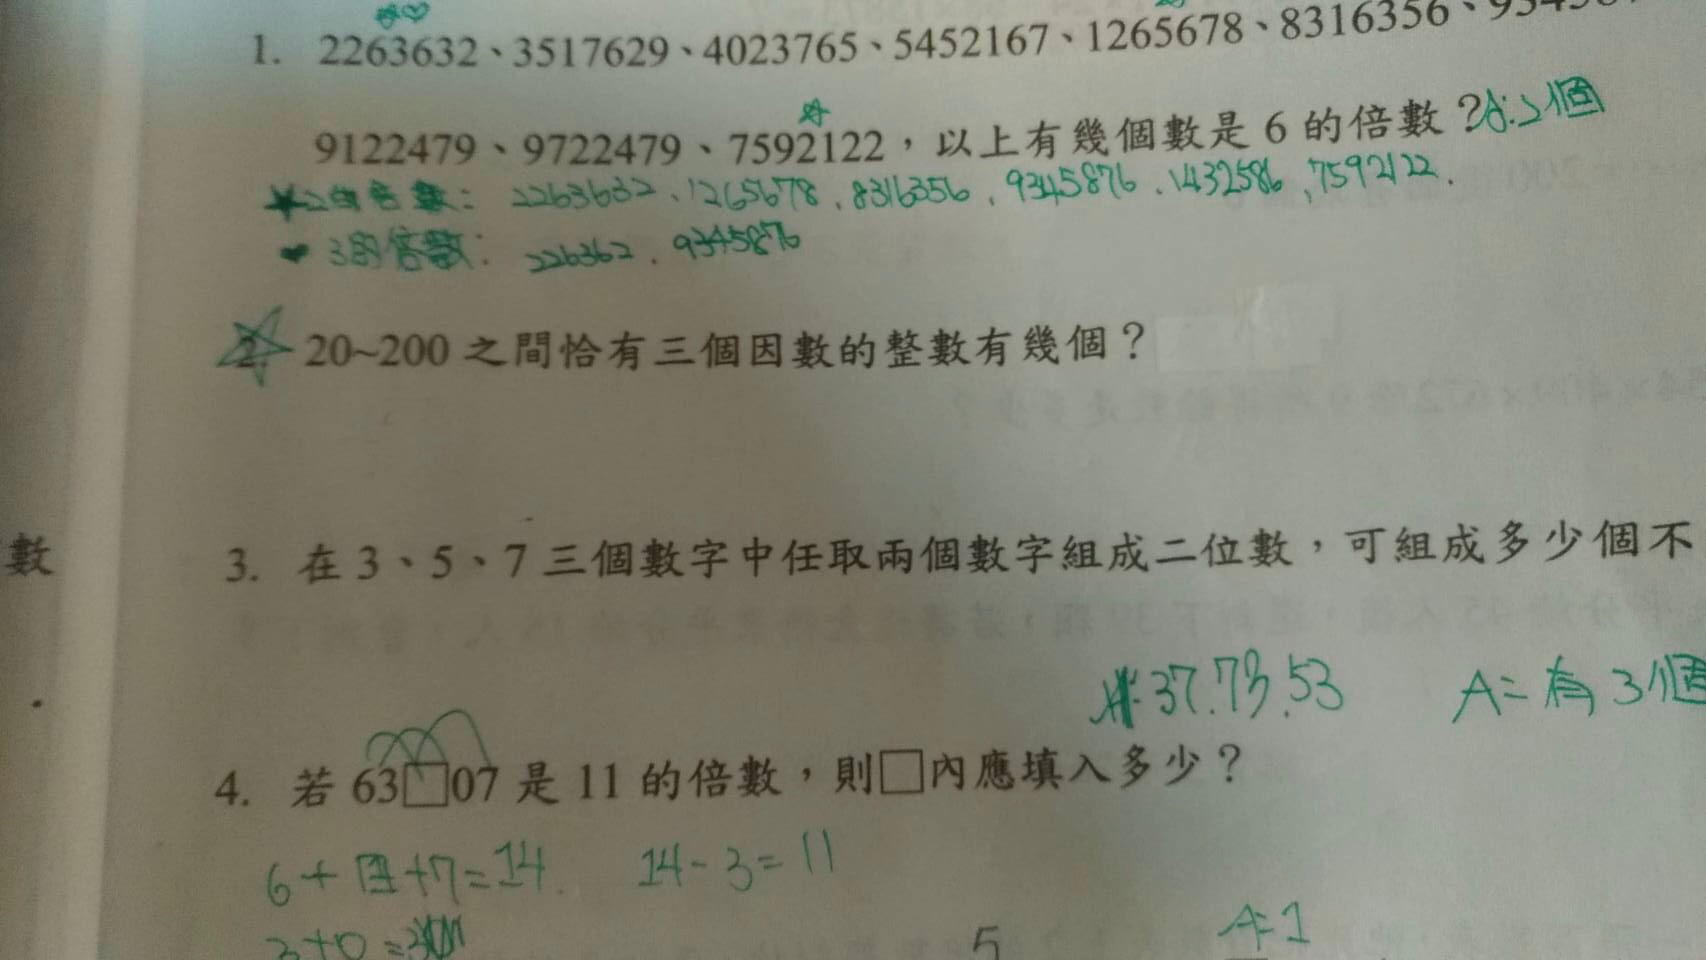 1. 2263632、3517629、4023765、5452167、1265678、8316356、
9122479、9722479、7592122，以上有幾個數是 6 的倍數？A:2個
2的倍數：2263632、1265678、8316356、9345876、1432586、7592122.
3的倍數：226362、9345876
2. 20~200 之間恰有三個因數的整數有幾個？
數
3. 在 3、5、7 三個數字中任取兩個數字組成二位數，可組成多少個不
37.73.53 A=有3個
4. 若 63□07 是 11 的倍數，則□內應填入多少？
6+ +7=14. 14-3=11
3+0=
5 A=1